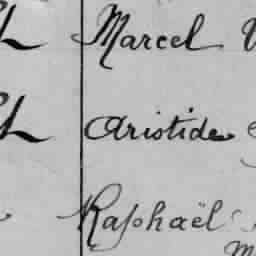 Marcel
Aristide
Raphaël